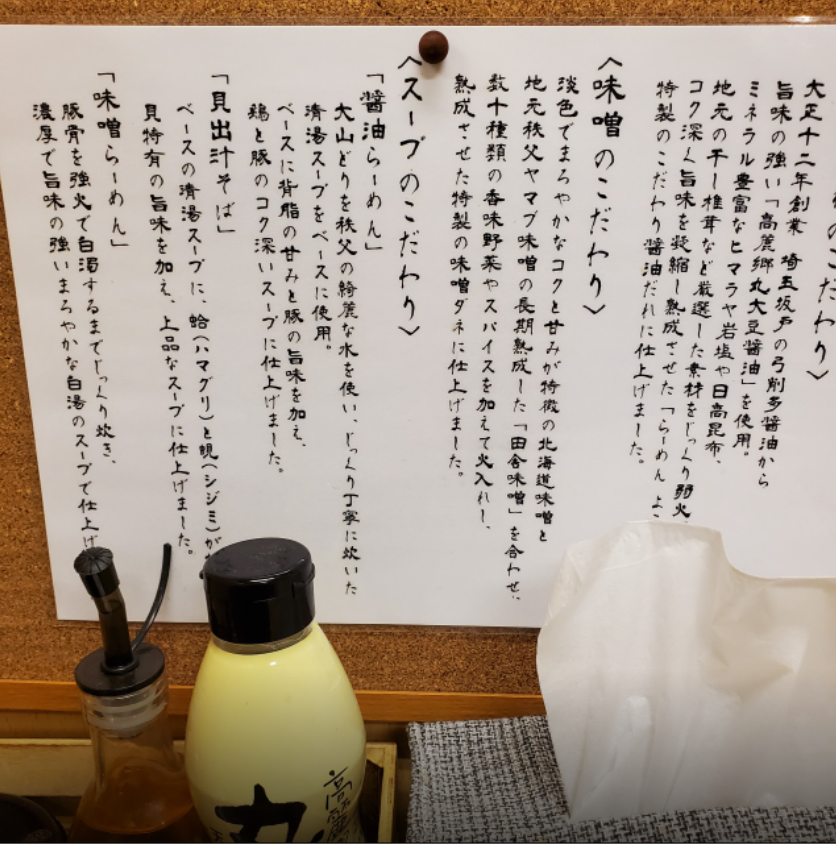 のこだわり〉
大正十二年創業 埼玉坂戸の弓削多醤油から
旨味の強い「高麗郷丸大豆醤油」を使用。
ミネラル豊富なヒマラヤ岩塩や日高昆布、
地元の干し椎茸など厳選した素材をじっくり弱火
コク深く旨味を凝縮し熟成させた「らーめん よ
特製のこだわり醤油だれに仕上げました。
〈味噌のこだわり〉
淡色でまろやかなコクと甘みが特徴の北海道味噌と
地元秩父ヤマブ味噌の長期熟成した「田舎味噌」を合わせ、
数十種類の香味野菜やスパイスを加えて火入れし、
熟成させた特製の味噌ダネに仕上げました。
〈スープのこだわり〉
「醤油らーめん」
大山どりを秩父の綺麗な水を使い、じっくり丁寧に炊いた
清湯スープをベースに使用。
ベースに背脂の甘みと豚の旨味を加え、
鶏と豚のコク深いスープに仕上げました。
「貝出汁そば」
ベースの清湯スープに、蛤(ハマグリ)と蜆(シジミ)が
貝特有の旨味を加え、上品なスープに仕上げました。
「味噌らーめん」
豚骨を強火で白濁するまでじっくり炊き、
濃厚で旨味の強いまろやかな白湯のスープで仕上げ
高麗
丸